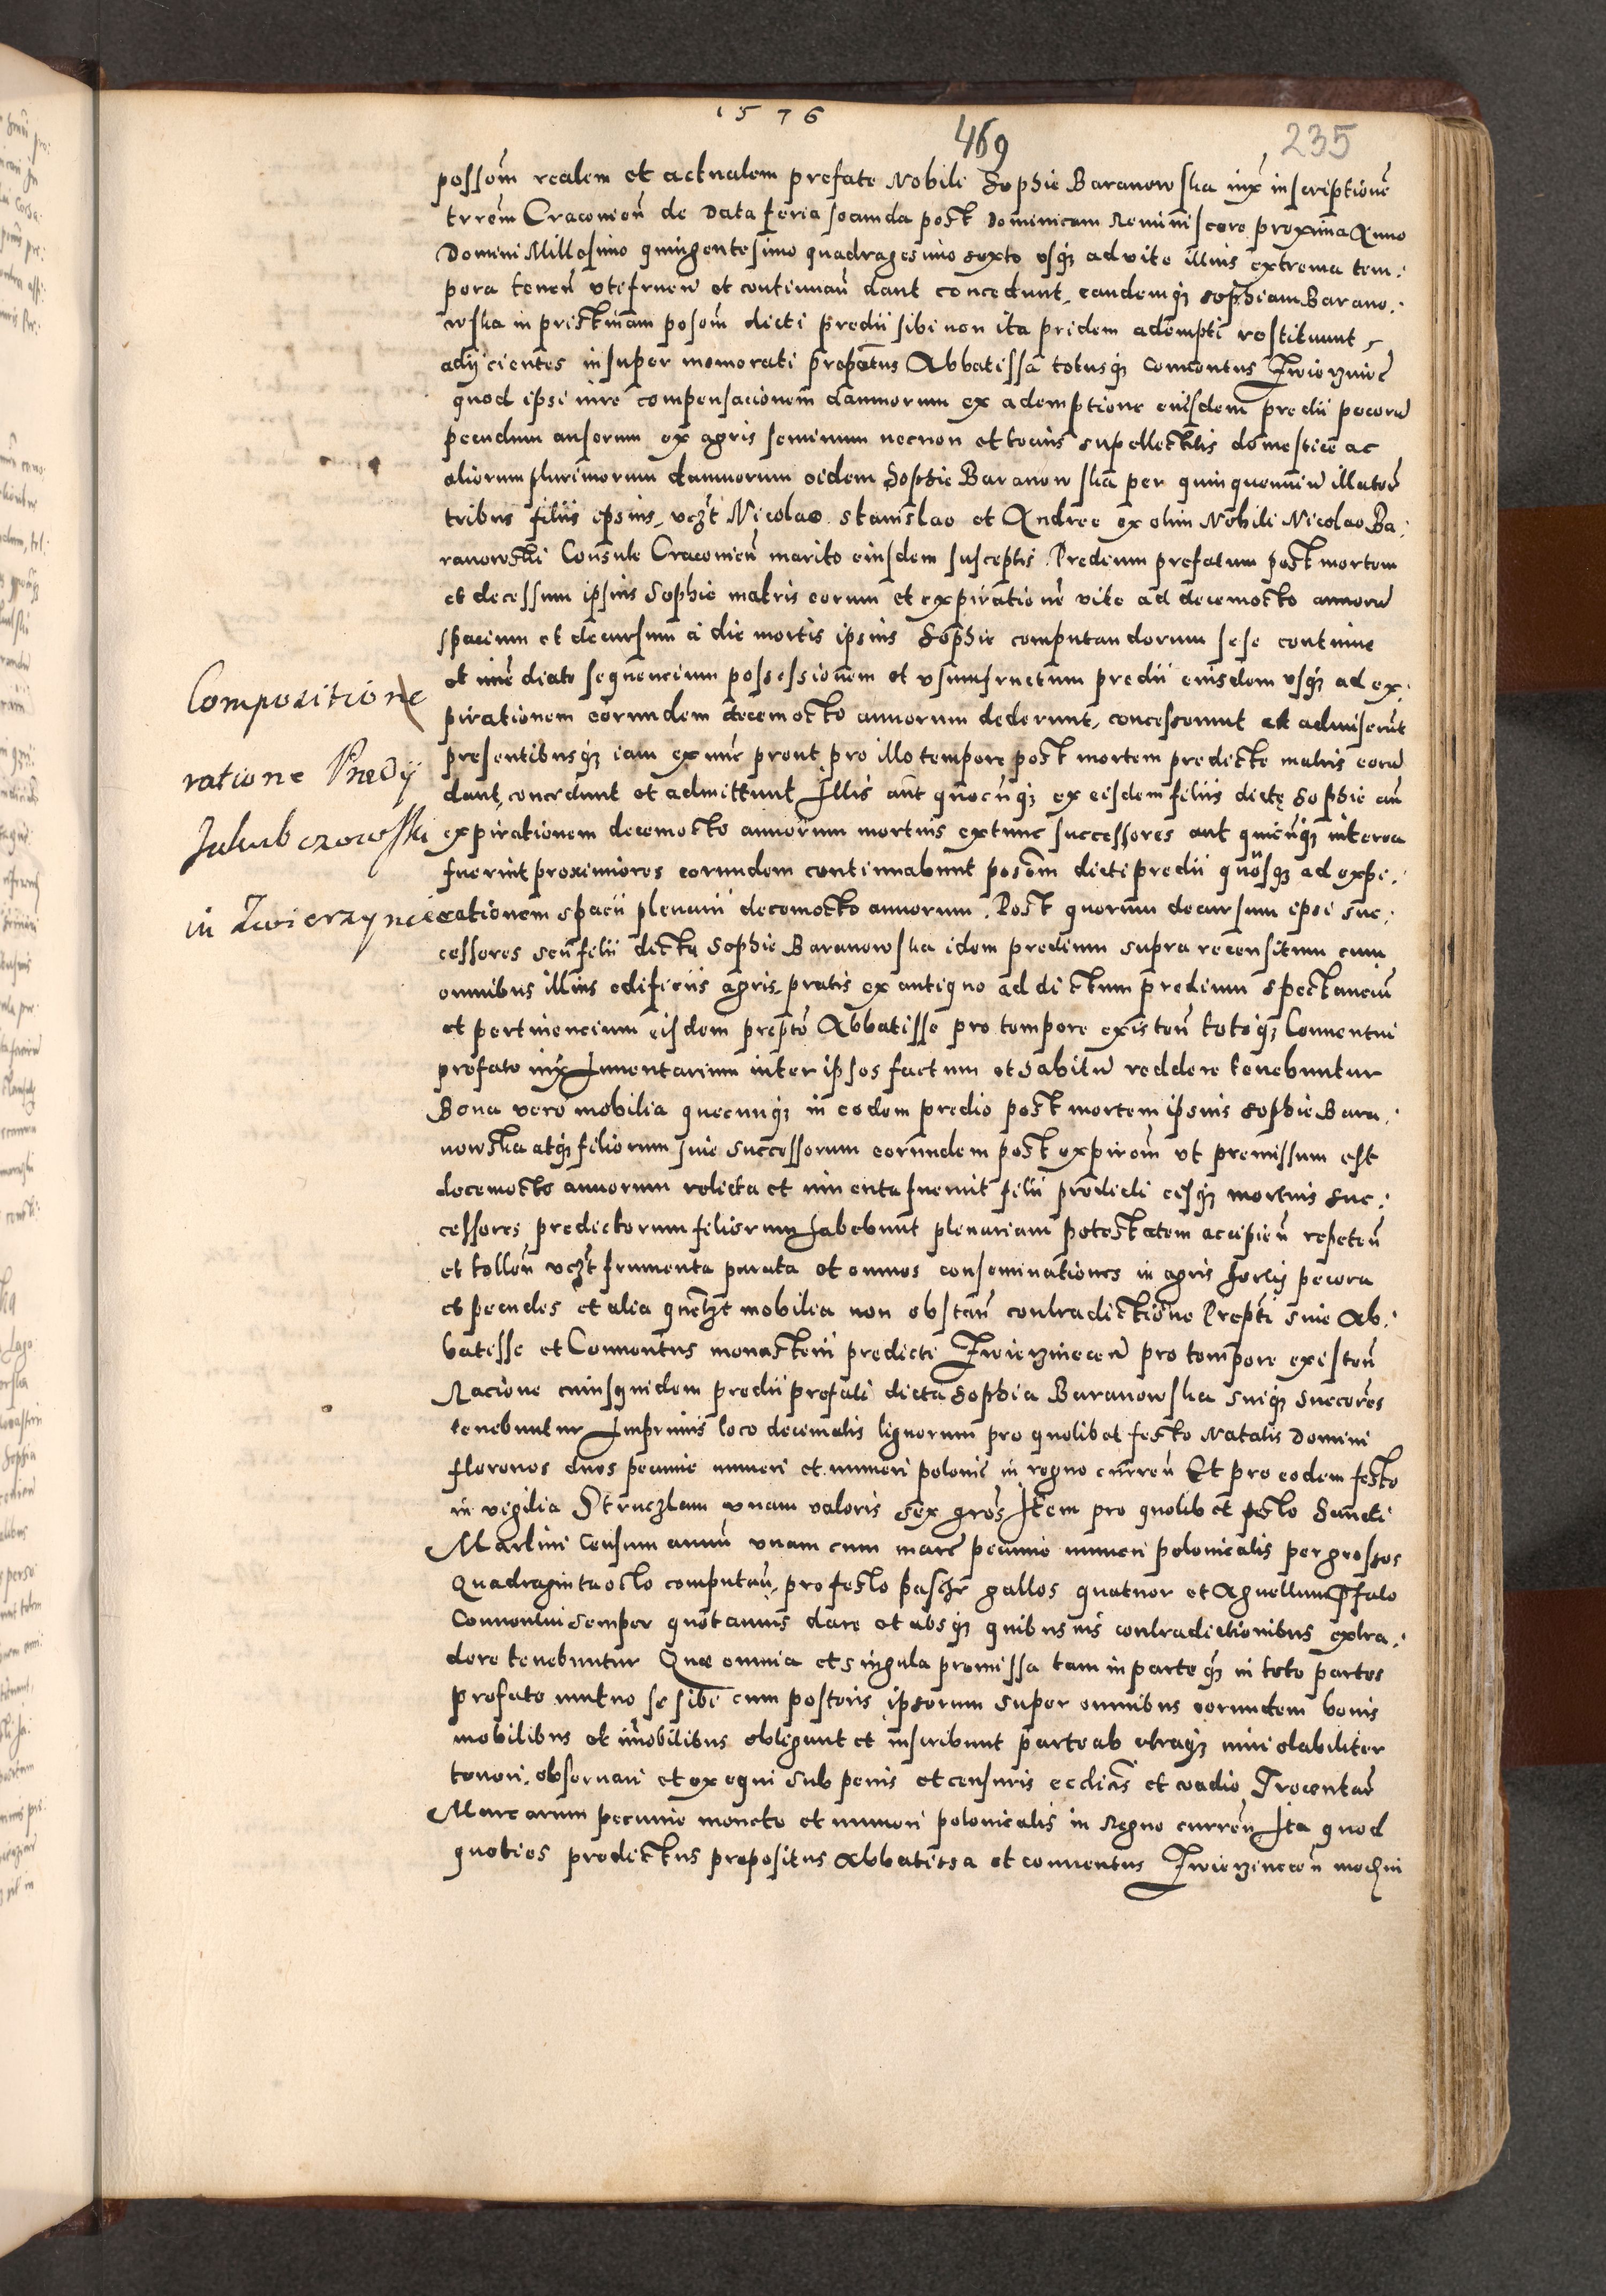 1576
469
235
possom realem et actualem prefate Nobili Sophie Baranowska iux inscriptione
trrem Cracouien de data feria secunda post dominicam Reminiscere proxima Anno
Domini Millesimo quingentesimo quadragesimo sexto vsq3 ad vite illius extrema tem:
pora tenen vtifruen et continuan dant concedunt, eandemq3 Sophiam Barano:
wska in pristinam posom dicti predii sibi non ita pridem adempti restituunt,
adijcientes insuper memorati prepotus Abbatissa totusq3 Conuentus Zwierzinec
quod ipsi iure compensacionem damnorum ex ademptione eiusdem predii pecoru
pecudum anserum ex agris seminum necnon et tocius supellectilis domestice ac
aliorum plurimorum damnorum eidem Sophie Baranowska per quinquenniu illator
tribus filiis ipsius, vczt Nicolao. Stanislao et Andree ex olim Nobili Nicolao Ba:
ranowski Consule Cracouien marito eiusdem susceptis. Predium prefatum post mortem
et decessum ipsius Sophie matris eorum et expiratione vite ad decemocto annoru
spacium et decursum a die mortis ipsius Sophie computandorum sese continue
et imediate sequencium possessionem et vsumfructum predii eiusdem vsq3 ad ex:
pirationem eorundem decemocto annorum dederunt, concesserunt et admiserut
presentibusq3 iam ex nunc prout pro illo tempore post mortem predicte matris eoru
dant, concedunt et admittunt Illis aut quocuq3 ex eisdem filiis dicte Sophie an
expirationem decemocto annorum mortuis extunc successores aut quicuq3 interea
fuerint proximiores eorundem continuabunt posom dicti predii quousq3 ad expi:
rationem spacii plenarii decemocto annorum. Post quorum decursum ipsi suc:
cessores seu filii dicte Sophie Baranowska idem predium supra recensitum cum
omnibus illius edificiis agris, pratis ex antiquo ad dictum predium spectanciu
et pertinencium eisdem prepto Abbatisse pro tempore existen totiq3 Conuentui
prefato iux Inuentarium inter ipsos factum et habitu reddere tenebuntur
Bona vero mobilia quecunq3 in eodem predio post mortem ipsius Sophie Bara:
nowska atq3 filiorum siue successorum eorundem post expirom vt premissum est
decemocto annorum relicta et inuenta fuerint filii predicti eisq3 mortuis suc:
cessores predictorum filiorum habebunt plenariam potestatem accipien repeten
et tollen vczt frumenta parata et omnes conseminationes in agris horty pecora
et pecudes et alia quelzt mobilia non obstan contradictione Prepti siue Ab:
batisse et Conuentus monasterii predicti Zwierzinecen pro tempore existen
Racione cuiusquidem predii prefati dicta Sophia Baranowska suiq3 succores
tenebuntur Inprimis loco decimalis lignorum pro quolibet festo Natalis Domini
florenos duos pecunie numeri et numeri polonic in regno curren Et pro eodem festo
in vigilia Struczlam vnam valoris sex gros Item pro quolibet festo Sancti
Martini Censum annu vnam cum marc pecunie numeri polonicalis per grossos
Quadragintaocto computan, pro festo pasche gallos quatuor et Agnellum pfato
Conuentui semper quotannis dare et absq3 quibusuis contradictionibus extra:
dere tenebuntur Quæ omnia et singula premissa tam in parte q3 in toto partes
prefate mutuo se sibi cum posteris ipsorum super omnibus eorundem bonis
mobilibus et imobilibus obligant et inscribunt parte ab vtraq3 inuiolabiliter
teneri, obseruari et exequi sub penis et censuris ecclicis et vadio Trecentar
Marcarum pecunie monete et numeri polonicalis in Regno curren Ita quod
quoties predictus prepositus Abbatissa et conuentus Zwierzinecen
Compositione
ratione Prædij
Jakubczowski
in Zwierzyniec